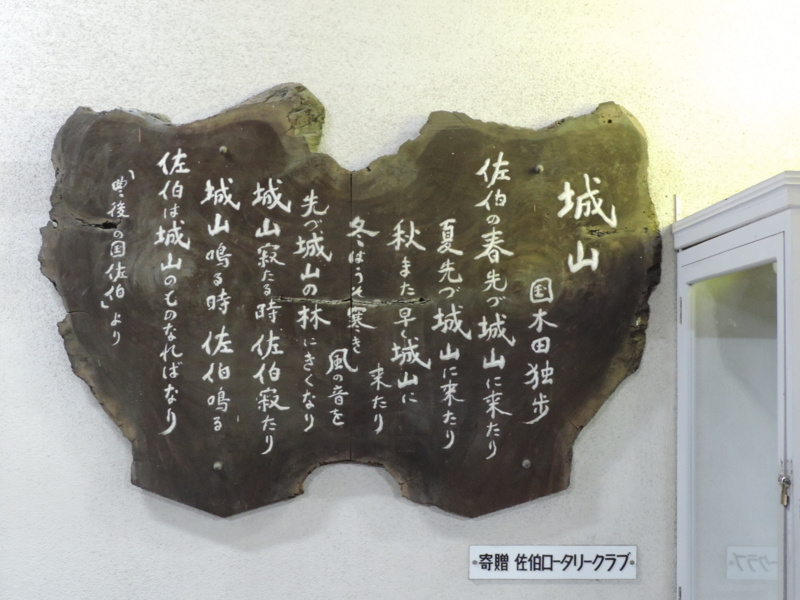 城山
国木田独歩
佐伯の春先づ城山に来たり
夏先づ城山に来たり
秋また早く城山に
来たり
冬はうそ寒き
風の音を
先づ城山の林にきくなり
城山寂たる時佐伯寂たり
城山鳴る時佐伯鳴る
佐伯は城山のものなればなり
「豊後の国佐伯」より
寄贈 佐伯ロータリークラブ